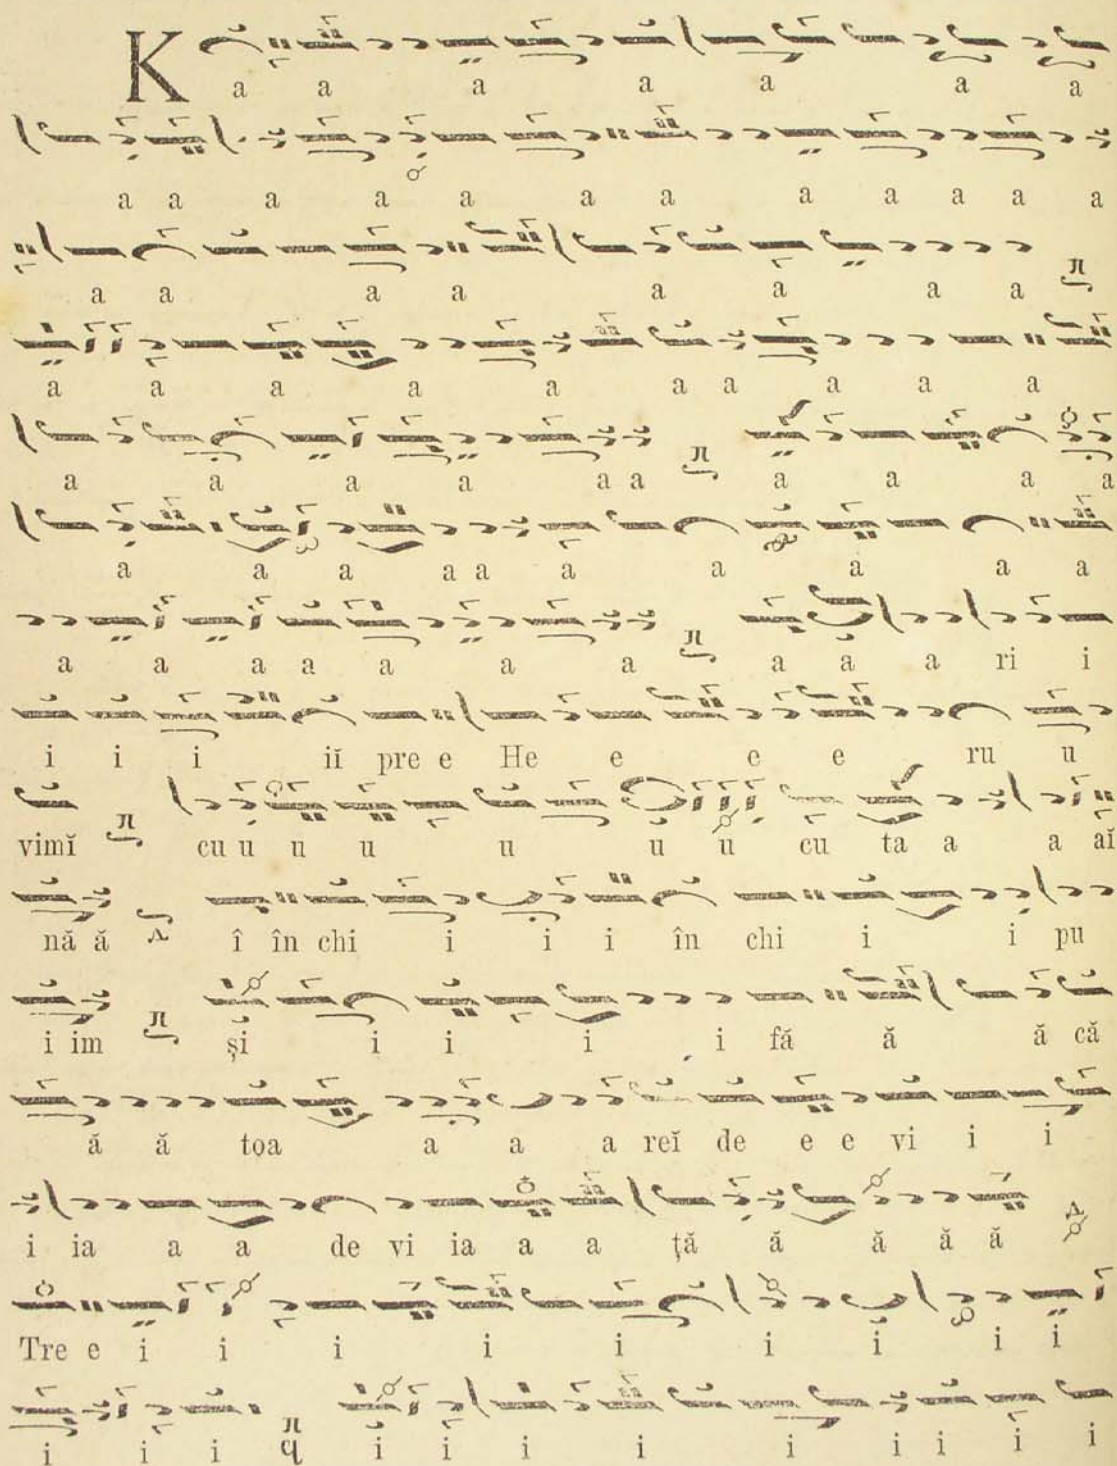 K a a a a a a a
a a a a a a a a a a a a
a a a a a a a a
a a a a a a a a a a
a a a a a a a a a a
a a a a a a a a a a
a a a a a a a a a a ri i
i i i iĭ pre e He e e e ru u
vimĭ cu u u u u u u cu ta a a aĭ
nă ă î în chi i i i în chi i i pu
i im și i i i i fă ă ă că
ă ă toa a a a reĭ de e e vi i i
i ia a a de vi ia a a ță ă ă ă ă
Tre e i i i i i i i i i
i i i i i i i i i i i i